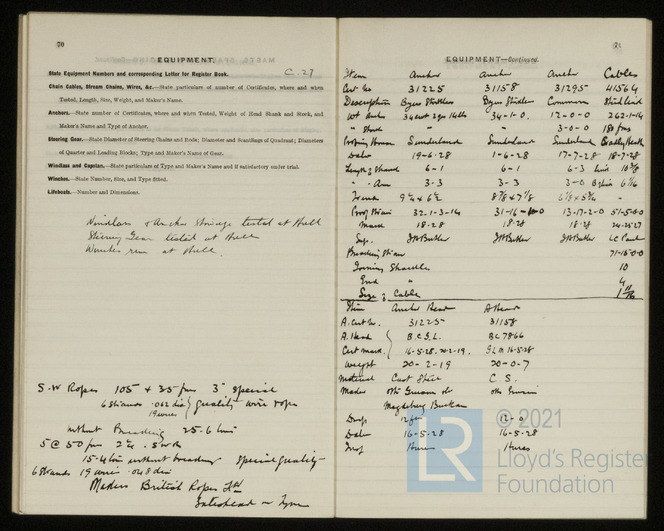 70
EQUIPMENT.
State Equipment Numbers and corresponding Letter for Register Book. C. 27
Chain Cables, Stream Chains, Wires, &c.—State particulars of number of Certificates, where and when
Tested, Length, Size, Weight, and Maker's Name.
Anchors.—State number of Certificates, where and when Tested, Weight of Head Shank and Stock, and
Maker's Name and Type of Anchor.
Steering Gear.—State Diameter of Steering Chains and Rods; Diameter and Scantlings of Quadrant; Diameters
of Quarter and Leading Blocks; Type and Maker's Name of Gear.
Windlass and Capstan.—State particulars of Type and Maker's Name and if satisfactory under trial.
Winches.—State Number, Size, and Type fitted.
Lifeboats.—Number and Dimensions.
Windlass & Anchor Stowage tested at Hull
Steering Gear tested at Hull
Winches run at Hull.
S.W Ropes 105 + 35 fms 3" special
6 strands .062 dia quality wire ropes
19 wires
without Breaking 25.6 tons
5 @ 50 fms 2¼
15.4 tons without breaking special quality
6 strands 19 wires .048 dia
Makers British Ropes Ltd
Gateshead on Tyne
71
EQUIPMENT—Continued.
Item Anchor Anchor Anchor Cables
Cert No. 31225 31158 31295 41564
Description Byers Stockless Byers Stockless Common Stud Link
Wt Anchor 34 cwt 2 qrs 14 lbs 34-1-0. 12-0-0 262-1-14
" Stock " " 3-0-0 180 fms
Proving House Sunderland Sunderland Sunderland Cradley Heath
Date 19-6-28 1-6-28 17-7-28 18-7-28
Length of Shank 6-1 6-1 6-3
" - Arm 3-3 3-3 3-0
Proof Strain 32.1-3-14 31-16 13.17-2-0 51-5-0-0
Breaking Strain 71-15-0-0
Joining Shackles 10
End " 4
Size of Cable 1 11/16
Item Anchor Head A Head
A. Cert No. 31225 31158
A. Head B.C.S.L. BC 7866
Cert mark. 16-5-28. 20-2-19. 16-5-28
Weight 20-2-19 20-0-7
Material Cast Steel C S.
Maker Otto Gruson &
Magdeburg Buckau
Drop 12 ft 12-0
Date 16-5-28 16-5-28
© 2021
LR
Lloyd's Register
Foundation